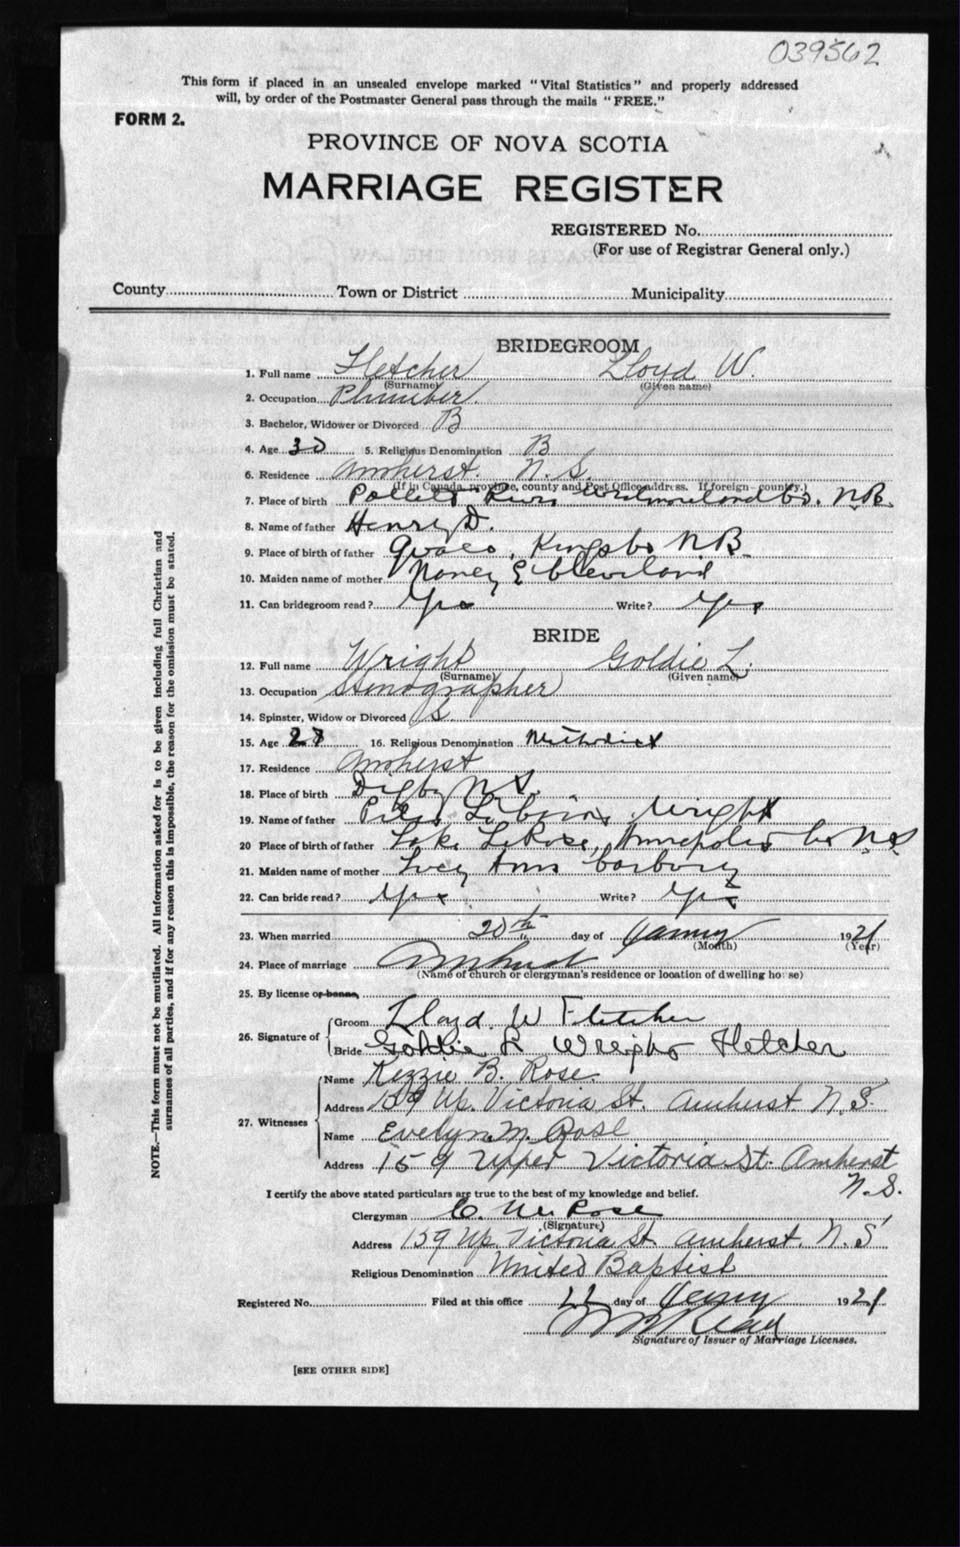 039562
This form if placed in an unsealed envelope marked "Vital Statistics" and properly addressed
will, by order of the Postmaster General pass through the mails "FREE."
FORM 2.
PROVINCE OF NOVA SCOTIA
MARRIAGE REGISTER
REGISTERED No.
(For use of Registrar General only.)
County Town or District Municipality
BRIDEGROOM
1. Full name Fletcher Lloyd W.
(Surname) (Given name)
2. Occupation Plumber.
3. Bachelor, Widower or Divorced B
4. Age 30 5. Religious Denomination B
6. Residence Amherst. N.S.
(If in Canada, province, county and Post Office address. If foreign—country.)
7. Place of birth River Westmoreland Co. N.B.
8. Name of father Henry D.
9. Place of birth of father Kings Co N.B.
10. Maiden name of mother Nancy E Cleveland
11. Can bridegroom read? Yes Write? Yes
BRIDE
12. Full name Wright Goldie L.
(Surname) (Given name)
13. Occupation Stenographer
14. Spinster, Widow or Divorced S.
15. Age 16. Religious Denomination Methodist
17. Residence Amherst
18. Place of birth Digby N.S.
19. Name of father Wright
20 Place of birth of father Lake LaRose, Annapolis Co N.S
21. Maiden name of mother Lucy Ann
22. Can bride read? Yes Write? Yes
23. When married 20th day of January 1921
(Month) (Year)
24. Place of marriage Amherst
(Name of church or clergyman's residence or location of dwelling house)
25. By license or banns,
26. Signature of
Groom Lloyd. W Fletcher
Bride Goldie L Wright Fletcher
27. Witnesses
Name Kezzie B. Rose.
Address 159 Up. Victoria St. Amherst. N.S.
Name Evelyn M. Rose
Address 159 Upper Victoria St. Amherst
N.S.
I certify the above stated particulars are true to the best of my knowledge and belief.
Clergyman Rose
(Signature)
Address 159 Up. Victoria St. Amherst. N.S
Religious Denomination United Baptist
Registered No. Filed at this office 22 day of January 1921
Signature of Issuer of Marriage Licenses.
[SEE OTHER SIDE]
NOTE.—This form must not be mutilated. All information asked for is to be given including full Christian and
surnames of all parties, and if for any reason this is impossible, the reason for the omission must be stated.